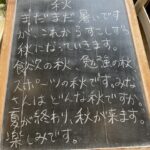 秋
まだまだ暑いです
が、これからすこしずつ
秋になっていきます。
食欲の秋 勉強の秋
スポーツの秋です。みな
さんはどんな秋ですか。
夏が終わり、秋が来ます。
楽しみです。